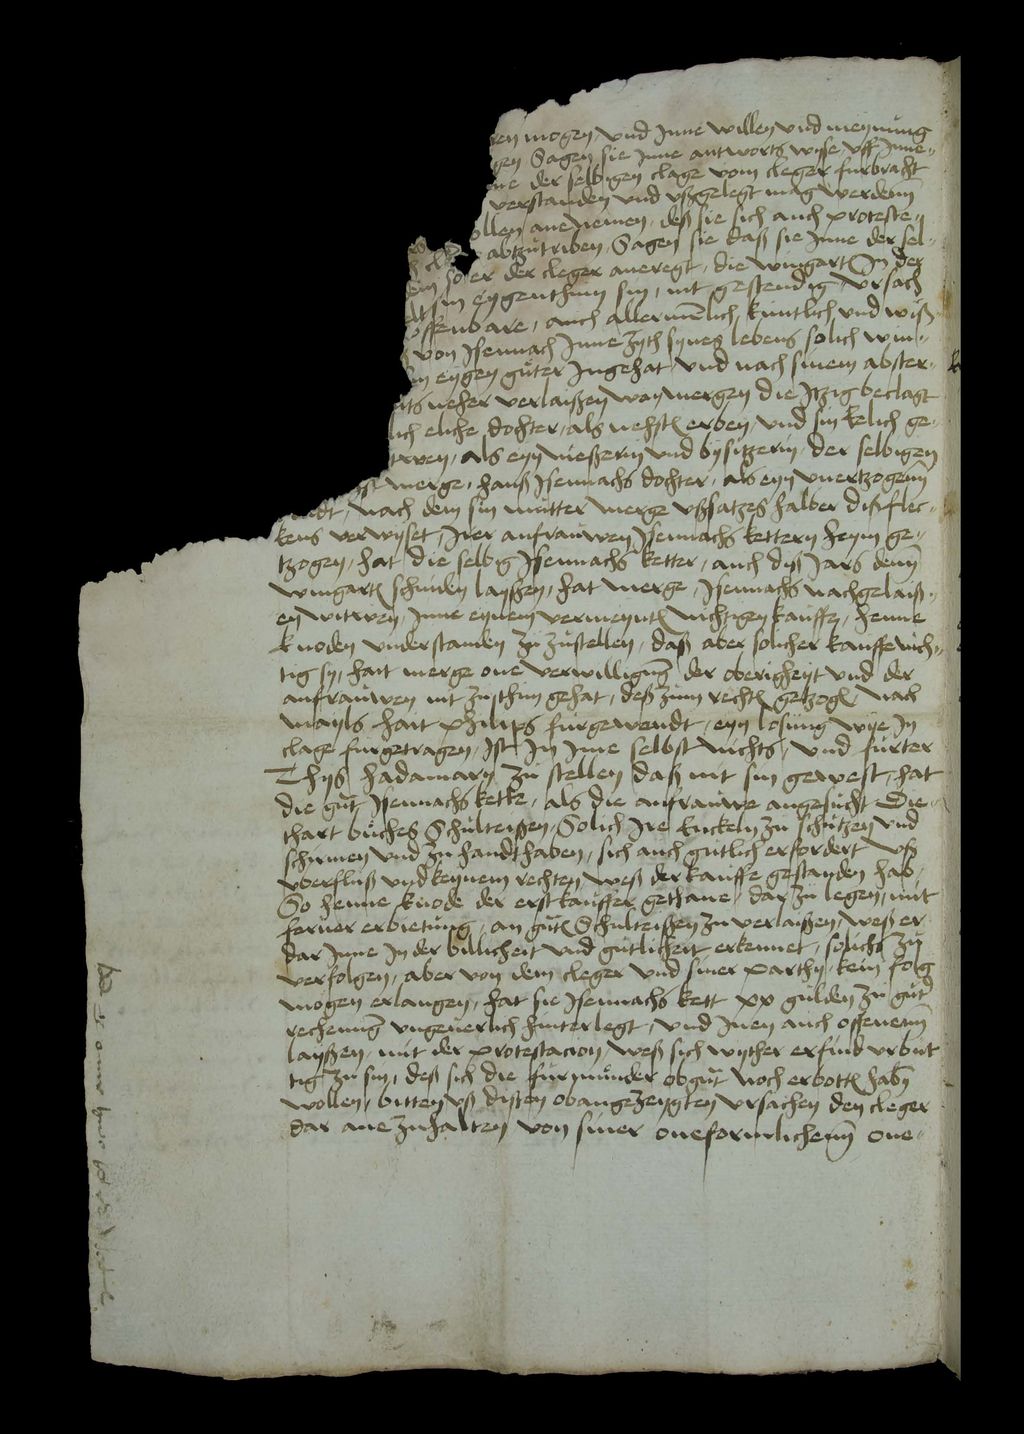 ren mogen und Inne willen und meynung
gen Sagen sie Inne antworts wyse uff Inne-
ne der selbigen clage vom cleger furbracht
verstanden und ußgelegt mag werdenn
ollen ane nemen, deß sie sich auch proteste-
abtzutriben, Sagen sie daß sie Inne der sel-
so er der cleger aneregt, die wingarten In der
sin eygenthum sin, nit gestendig ursach
offenbare, auch allermenlich kuntlich und wiß
von Isennach Inne zyth synes lebens solich win-
in eygen guter Ingehat und nach sinem abster-
neher verlaißen von mergen die Itzig beclagt
lich eliche dochter, als nehsten erben, und sin Eelich ge-
als eyn nießerin und bysitzerin, der selbigen
merge, hanß Isennachs dochter, als eyn unertzogenn
nach dem sin mutter merge ußsatzes halber diß flec-
kens verwyset, Irer anfrauwen Isennachs kettern heym ge-
tzogen, hat die selbig Isennachs ketter, auch dyß Jars denn
wingarten schniden laysßen, hat merge, Isennachs nachgelaiß-
en witwen, Inne eynem vermeynten nichtigen kauffe, henne
knoden understanden zu zustellen, daß aber solicher kauffe nich-
tig sy, hait merge one verwilligung der oberigheyt und der
anfrauwen nit zu thun gehat, deß zum rechten getzogen, Nach
mayls hait philips furgewendt, eyn losung wye In
clage furgetragen, Ist In Ime selbst nichts, und furter
Thys hadamarn zu stellen daß nit sin gewest, hat
die gut Isennachs kette, als die anfrauwe angesucht Die-
thart buches Schulteißen, Solich Ire Enckeln zu schutzen und
schirmen und zu handthaben, sich auch gutlich erfordert uß
uberfluß und keynem rechten, weß der kauffe gestanden hab,
So henne knode der erst kauffer gethane, dar zu legen, mit
ferner erbietung, an guten Schulteißen zu verlaißen, weß er
dar Inne In der billicheit und gutlicheit erkennet, solichs zu
verfolgen, aber von dem cleger und siner parthy, kein folg
mogen erlangen, hat sie Isennachs kett xx gulden zu gut
rechenung ungeuerlich hinterlegt, und Inen auch offenenn
laysßen, mit der protestacion, weß sich wyther erfind urbut
tig zu sin, deß sich die furmunder obgut noch erbotten haben
wollen, bitten uß dysen obangezeygten ursachen den cleger
dar ane zuhalten von siner oneformlichenn one-